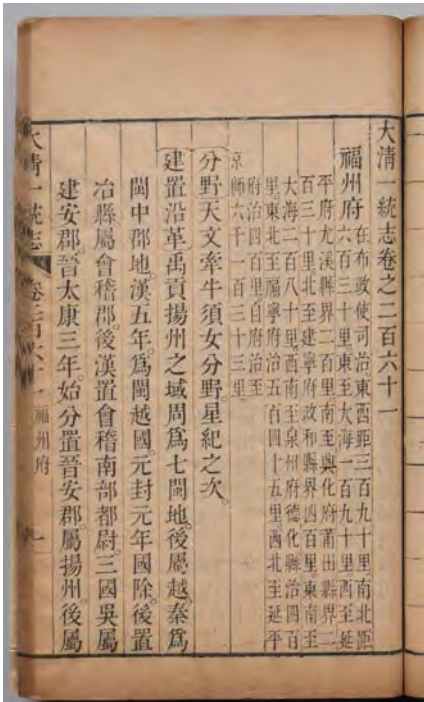 大清一統志卷之二百六十一
福州府
在布政使司治東西距三百九十里南北距
六百三十里東至大海一百九十里西至延
平府尤溪縣界二百里南至興化府莆田縣界二
百三十里北至建寧府政和縣界四百里東南至
大海二百八十里西南至泉州府德化縣治四百
里東北至福寧府治五百四十五里西北至延平
府治四百里自府治至
京師六千一百三十三里
分野天文牽牛須女分野。星紀之次。
建置沿革禹貢揚州之域周爲七閩地。後屬越。秦爲
閩中郡地。漢五年。爲閩越國。元封元年國除。後置
冶縣屬會稽郡。後漢置會稽南部都尉。三國吳屬
建安郡。晉太康三年。始分置晉安郡。屬揚州。後屬
大清一統志 卷二百六十一 福州府 一